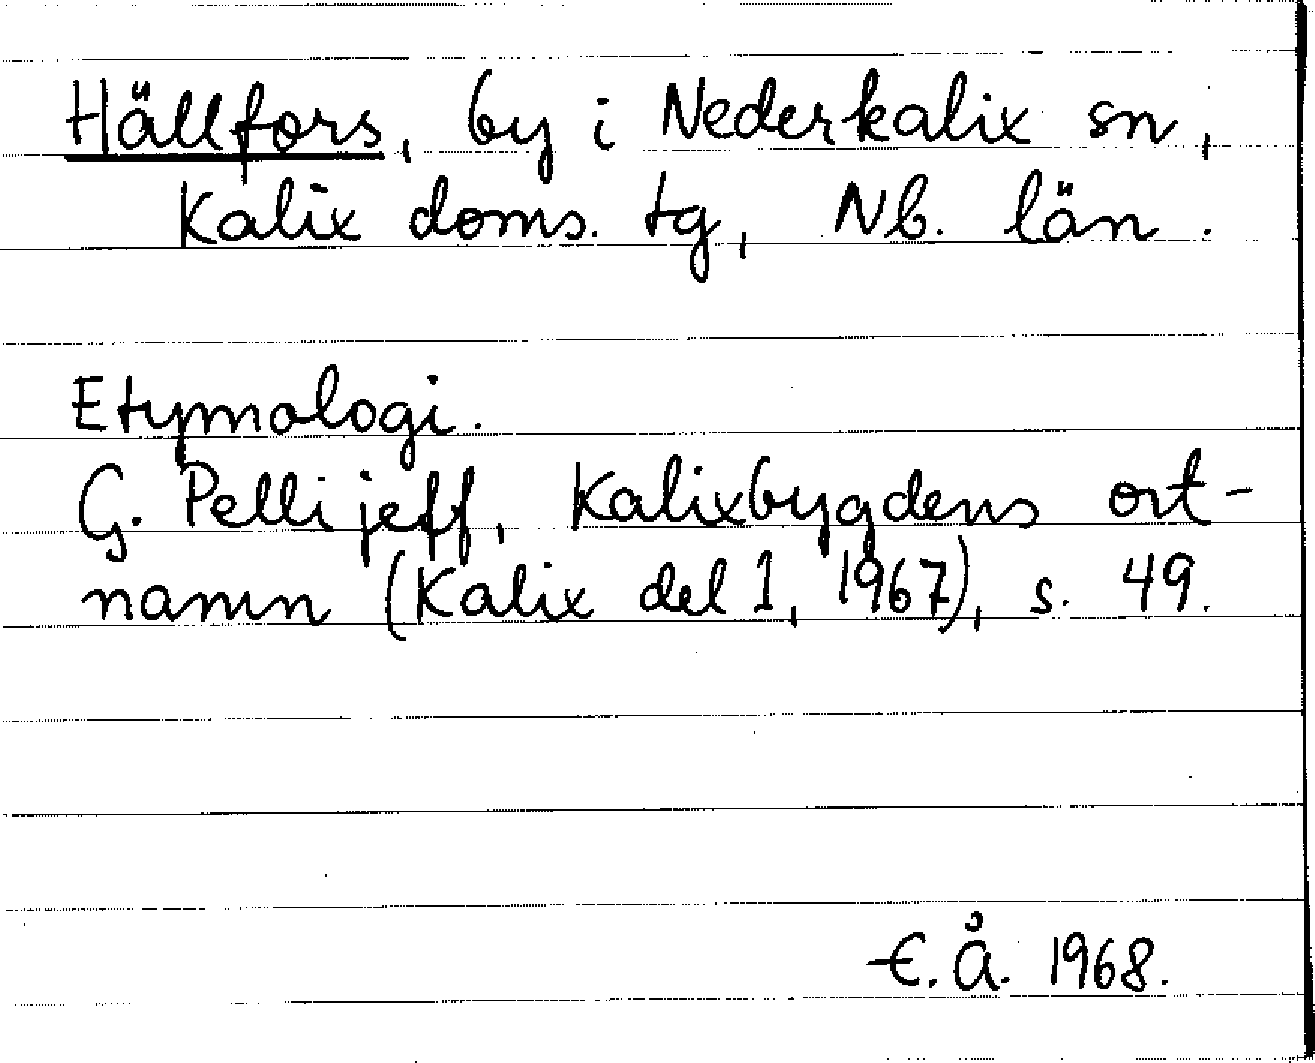 Hällfors, by i Nederkalix sn,
Kalix doms. tg, Nb. län.
Etymologi.
G. Pellijeff, Kalixbygdens ort-
namn (Kalix del 1, 1967), s. 49.
E. Å. 1968.